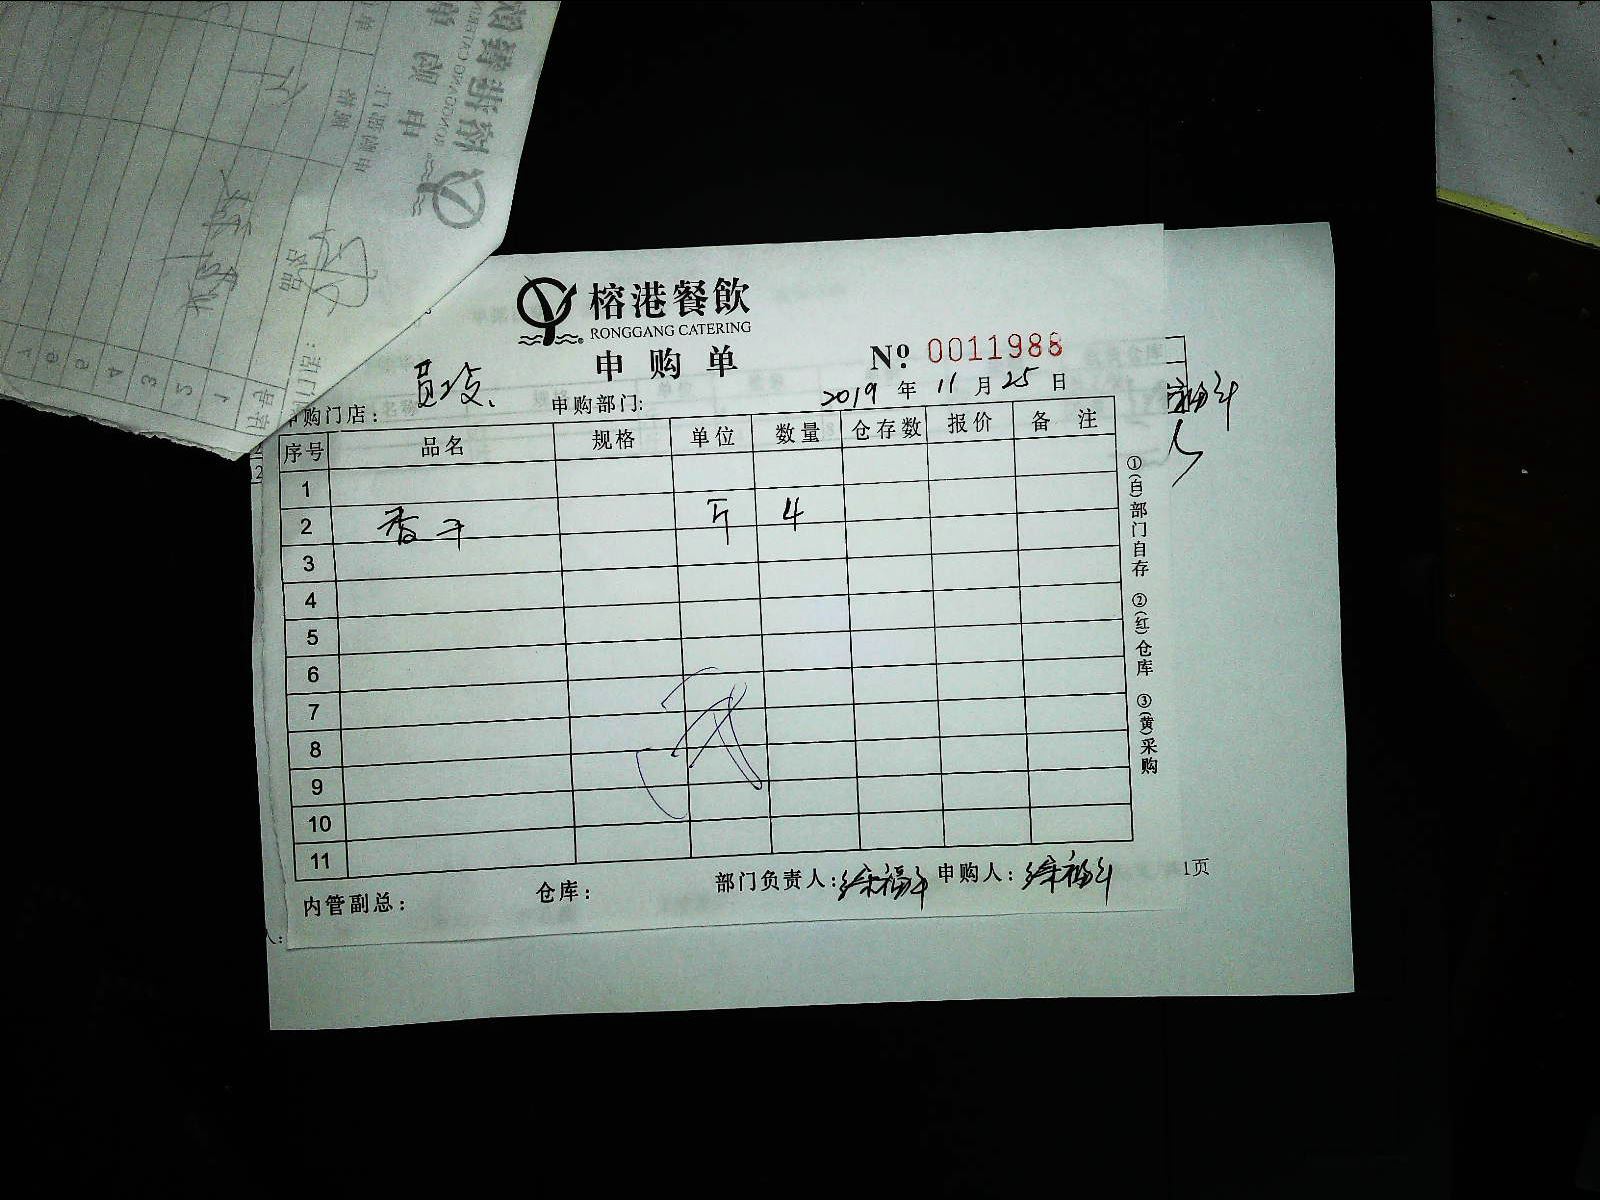 榕港餐飲
RONGGANG CATERING
申购单
№ 0011988
申购门店: 申购部门: 2019年11月25日
序号 品名 规格 单位 数量 仓存数 报价 备注
1
2 香干 斤 4
3
4
5
6
7
8
9
10
11
①(白)部门自存 ②(红)仓库 ③(黄)采购
内管副总: 仓库: 部门负责人:徐福斗 申购人:徐福斗
1页